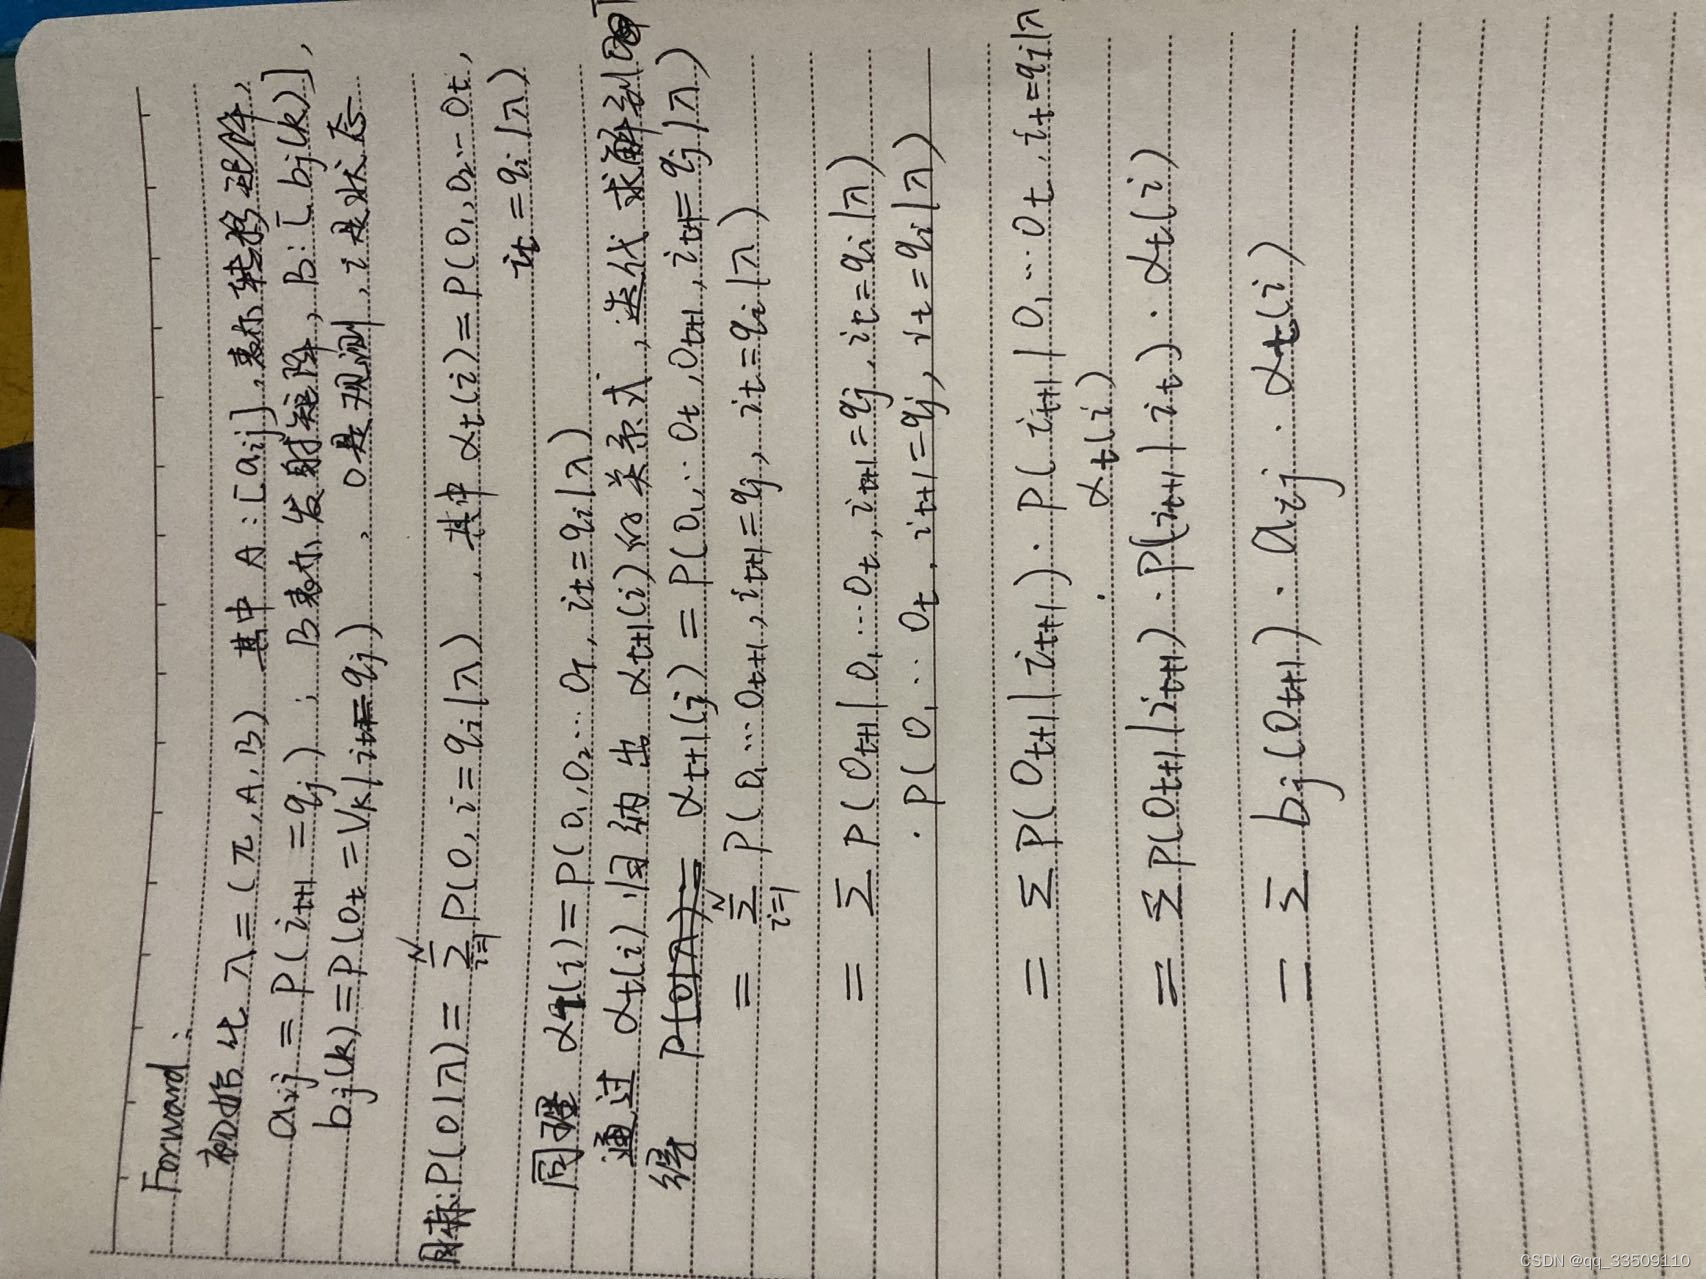 Forward:
初始化 λ=(π,A,B) 其中 A:[aij],表示转移矩阵,
aij = P(it+1 = qj) ; B表示发射矩阵, B:[bj(k)],
bj(k)=P(Ot=Vk|it=qj) , O是观测, i是状态
目标:P(O|λ)= Σ(i=1→N) P(O,i=qi|λ) , 其中 αt(i)=P(O1,O2…Ot,
it=qi|λ)
同理 αT(i)=P(O1,O2…OT, it=qi|λ)
通过 αt(i) 归纳出 αt+1(i)的关系式,迭代求解到
得 P(O|λ)= αt+1(j) = P(O1…Ot,Ot+1,it+1=qj|λ)
= Σ(i=1→N) P(O1…Ot+1,it+1=qj,it=qi|λ)
= Σ P(Ot+1|O1…Ot,it+1=qj,it=qi|λ)
·P(O1…Ot,it+1=qj,it=qi|λ)
= Σ P(Ot+1|it+1)·P(it+1|O1…Ot,it=qi|λ)
·αt(i)
= Σ P(Ot+1|it+1)·P(it+1|it)·αt(i)
= Σ bj(Ot+1)·aij·αt(i)
CSDN @qq_33509110